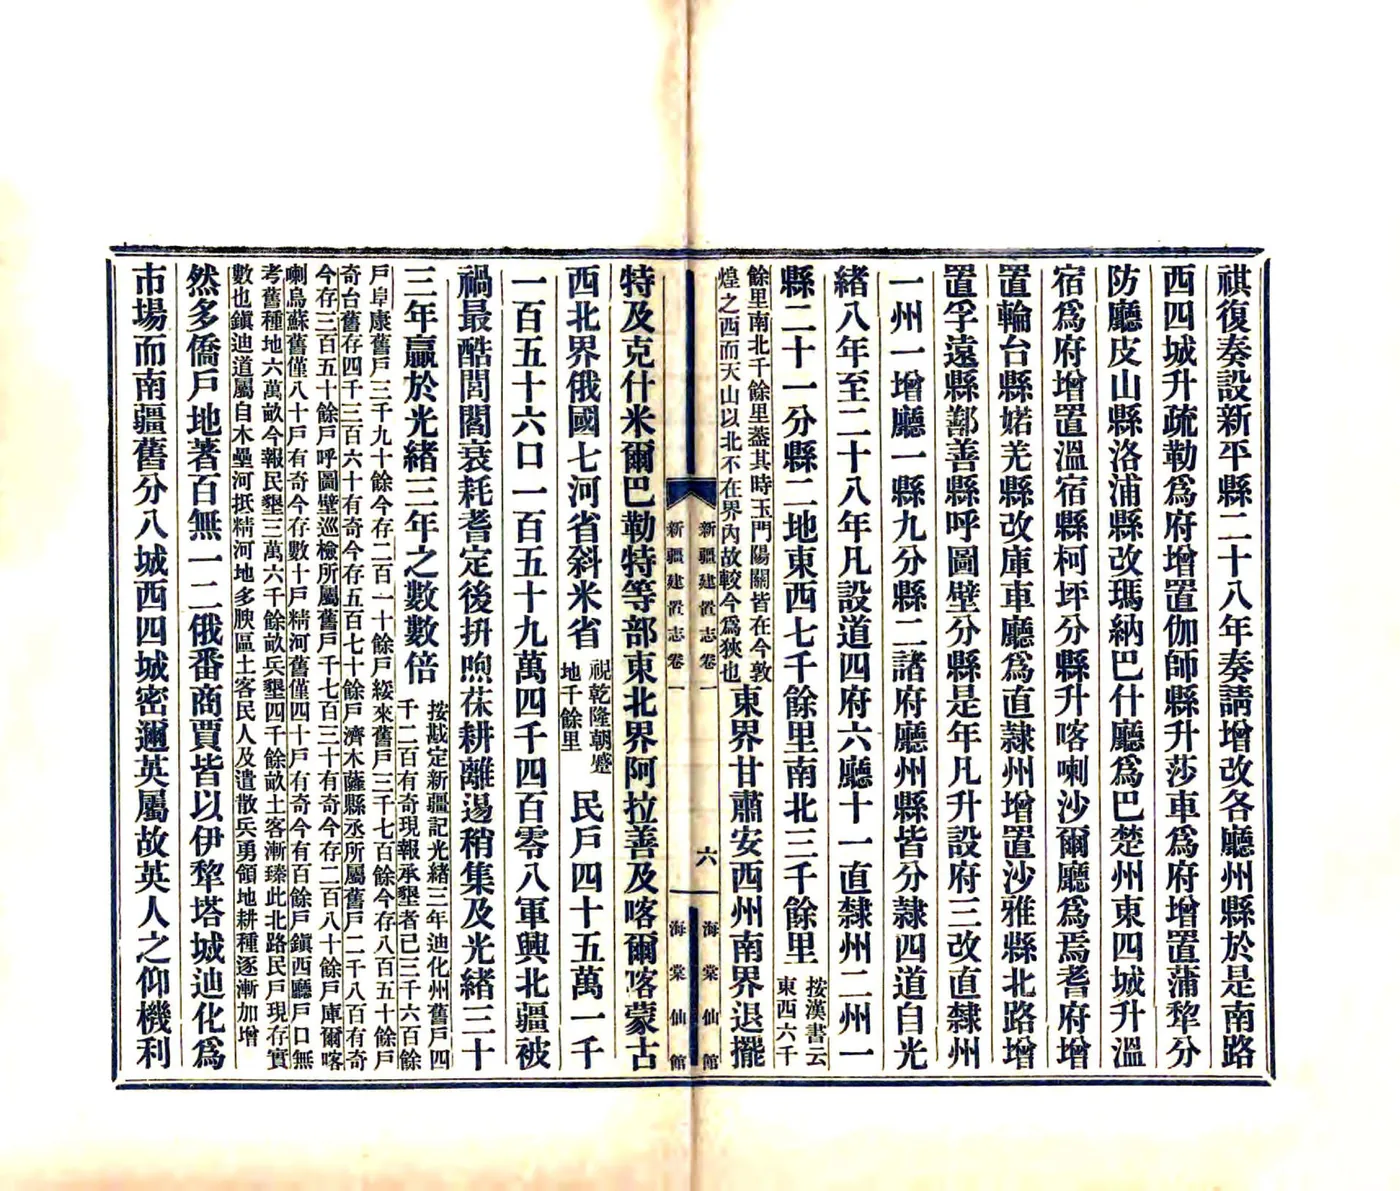 祺復奏設新平縣二十八年奏請增改各廳州縣於是南路
西四城升疏勒爲府增置伽師縣升莎車爲府增置蒲犂分
防廳皮山縣洛浦縣改瑪納巴什廳爲巴楚州東四城升溫
宿爲府增置溫宿縣柯坪分縣升喀喇沙爾廳爲焉耆府增
置輪台縣婼羌縣改庫車廳爲直隷州增置沙雅縣北路增
置孚遠縣鄯善縣呼圖壁分縣是年凡升設府三改直隷州
一州一增廳一縣九分縣二諸府廳州縣皆分隷四道自光
緒八年至二十八年凡設道四府六廳十一直隷州二州一
縣二十一分縣二地東西七千餘里南北三千餘里
按漢書云
東西六千
餘里南北千餘里蓋其時玉門陽關皆在今敦
煌之西而天山以北不在界內故較今爲狹也
東界甘肅安西州南界退擺
新疆建置志卷一
六
海棠仙館
新疆建置志卷一
海棠仙館
特及克什米爾巴勒特等部東北界阿拉善及喀爾喀蒙古
西北界俄國七河省斜米省
視乾隆朝蹙
地千餘里
民戶四十五萬一千
一百五十六口一百五十九萬四千四百零八軍興北疆被
禍最酷閭閻衰耗耆定後拊喣茠耕離逷稍集及光緒三十
三年贏於光緒三年之數數倍
按戡定新疆記光緒三年迪化州舊戶四
千二百有奇現報承墾者已三千六百餘
戶阜康舊戶三千九十餘今存二百一十餘戶綏來舊戶三千七百餘今存八百五十餘戶
奇台舊存四千三百六十有奇今存五百七十餘戶濟木薩縣丞所屬舊戶二千八百有奇
今存三百五十餘戶呼圖壁巡檢所屬舊戶千七百三十有奇今存二百八十餘戶庫爾喀
喇烏蘇舊僅八十戶有奇今存數十戶精河舊僅四十戶有奇今有百餘戶鎭西廳戶口無
考舊種地六萬畝今報民墾三萬六千餘畝兵墾四千餘畝土客漸臻此北路民戶現存實
數也鎭迪道屬自木壘河抵精河地多腴區土客民人及遣散兵勇領地耕種逐漸加增
然多僑戶地著百無一二俄番商賈皆以伊犂塔城迪化爲
市場而南疆舊分八城西四城密邇英屬故英人之仰機利